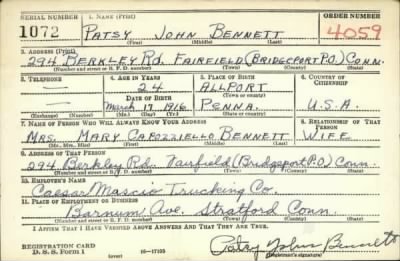 SERIAL NUMBER 1. NAME (Print) ORDER NUMBER
1072 PATSY JOHN BENNETT 4059
(First) (Middle) (Last)
2. ADDRESS (Print)
294 BERKLEY RD. FAIRFIELD (BRIDGEPORT P.O.) CONN.
(Number and street or R. F. D. number) (Town) (County) (State)
3. TELEPHONE 4. AGE IN YEARS 5. PLACE OF BIRTH 6. COUNTRY OF CITIZENSHIP
— 24 ALLPORT
DATE OF BIRTH (Town or county)
— March 17, 1916 PENNA. U.S.A.
(Exchange) (Number) (Mo.) (Day) (Yr.) (State or country)
7. NAME OF PERSON WHO WILL ALWAYS KNOW YOUR ADDRESS 8. RELATIONSHIP OF THAT PERSON
MRS. MARY CAPOZZIELLO BENNETT WIFE
(Mr., Mrs., Miss) (First) (Middle) (Last)
9. ADDRESS OF THAT PERSON
294 Berkley Rd. Fairfield (Bridgeport P.O.) Conn.
(Number and street or R. F. D. number) (Town) (County) (State)
10. EMPLOYER'S NAME
Caesar Mascio Trucking Co.
11. PLACE OF EMPLOYMENT OR BUSINESS
Barnum Ave. Stratford Conn.
(Number and street or R. F. D. number) (Town) (County) (State)
I AFFIRM THAT I HAVE VERIFIED ABOVE ANSWERS AND THAT THEY ARE TRUE.
REGISTRATION CARD
D. S. S. Form 1 (over) 16—17105
Patsy John Bennett
(Registrant's signature)